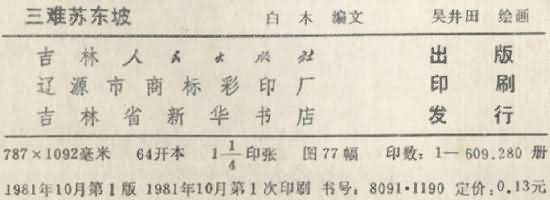 三难苏东坡 白木 编文 吴井田 绘画
吉林人民出版社 出版
辽源市商标彩印厂 印刷
吉林省新华书店 发行
787×1092毫米 64开本 1 1/4印张 图77幅 印数：1—609,280 册
1981年10月第1版 1981年10月第1次印刷 书号：8091·1190 定价：0.13元